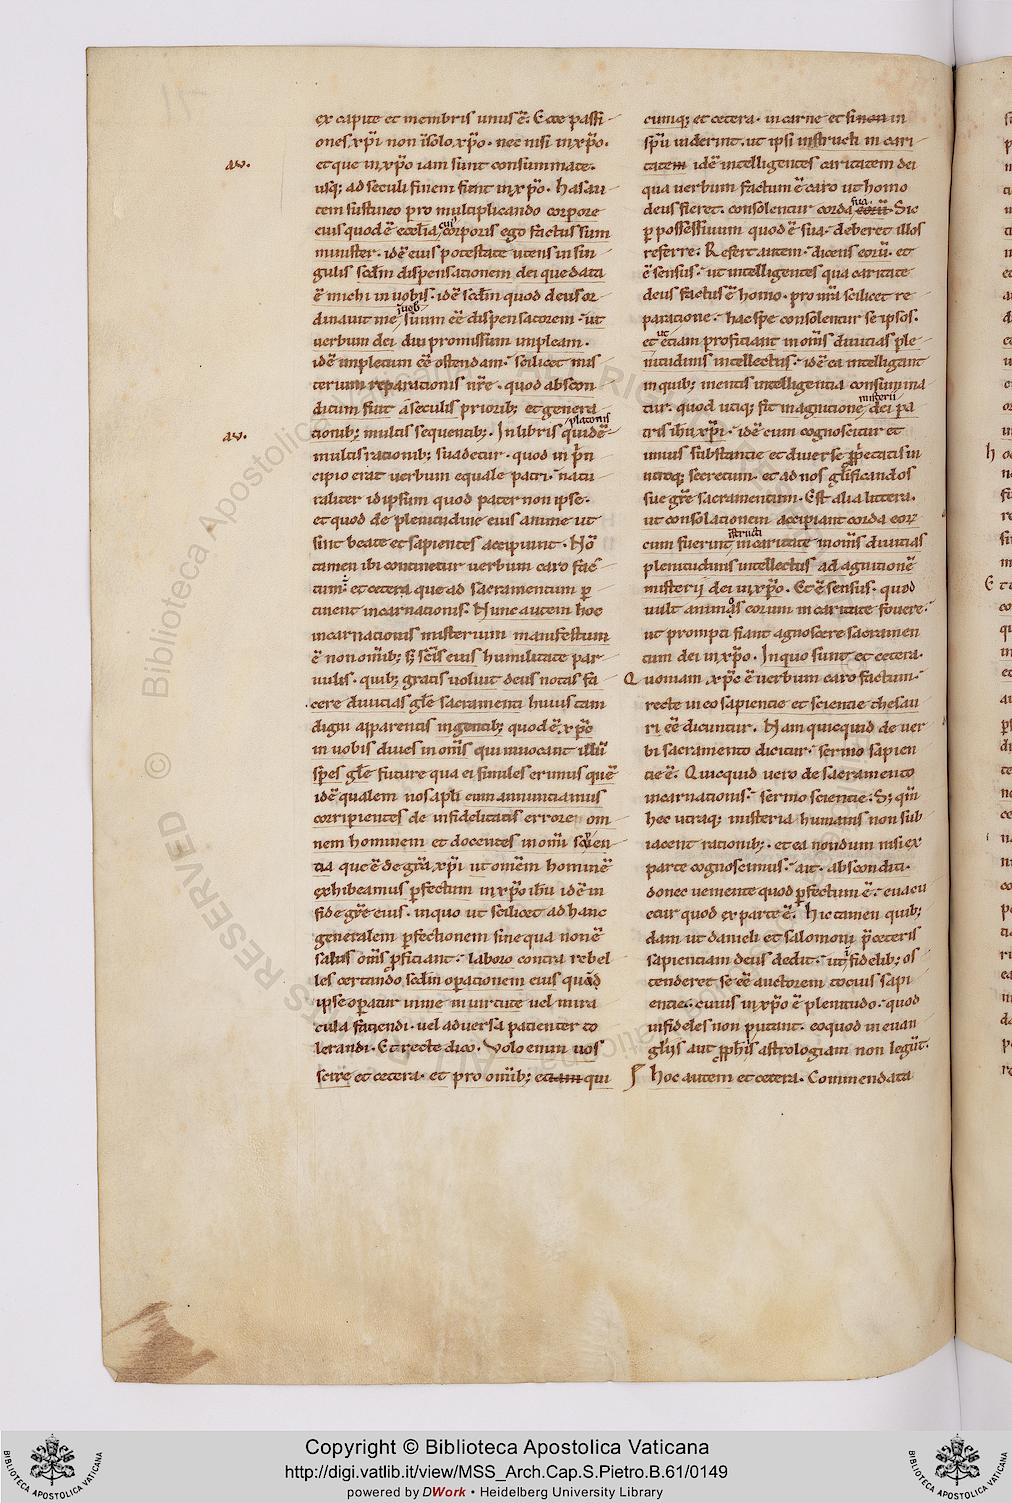 ex capite et membris unus ē. Ecce passi-
ones xp̄i non ĩsolo xp̄o. nec nisi in xp̄o.
aug.
et que in xp̄o iam sunt consummate.
usq; ad seculi finem fiunt in xp̄o. Has au-
tem sustineo pro multiplicando corpore
eius quod ē ecclia, cui' corporis ego factus sum
minister. idē eius potestate utens in sin-
gulis scdm̄ dispensationem dei que data
ē michi in uobis. idē scdm̄ quod deus or-
dinauit me, sueb' suum eē dispensatorem. ut
uerbum dei diu promissum impleam.
idē impletum eē ostendam. scilicet mis-
terium reparationis nr̄e. quod abscon-
ditum fuit a seculis priorib; et genera-
aug.
tionib; multis sequentib;. In libris platonis quidē
multis rationib; suadetur. quod in p̄n-
cipio erat uerbum equale patri. natu-
raliter id ipsum quod pater non ipse.
et quod de plenitudine eius anime ut
sint beate et sapientes accipiunt. Nō
tamen ibi continetur uerbum caro fac-
tum. et cetera que ad sacramentum p̱-
tinent incarnationis. Nunc autem hoc
incarnationis misterium manifestum
ē non om̄ib; s; scīs eius humilitate par-
uulis. quib; gratis uoluit deus notas fa-
cere diuicias gl̄e sacramenti huius tam
digni apparentis in gentib; quod ē xp̄c
in uobis diues in om̄s qui inuocant illū
spes gl̄e future qua ei similes erimus quē
idē qualem nos apl̄i eum annunciamus
corripientes de infidelitatis errore om-
nem hominem et docentes in om̄i scien-
tia que ē de gr̄a xp̄i ut om̄em hominē
exhibeamus p̱fectum in xp̄o ihū idē in
fide gr̄e eius. in quo ut scilicet ad hanc
generalem p̱fectionem sine qua non ē
salus om̄s p̱ficiant. laboro contra rebel-
les certando scdm̄ op̱ationem eius quod
ipse op̱atur in me in uirtute uel mira-
cula faciendi. uel aduersa patienter to-
lerandi. Et recte dico. Volo enim uos
scire et cetera. et pro om̄ib; etiam qui
cumq; et cetera. in carne et si non in
sp̄u uiderint. ut ipsi instructi in cari-
tatem idē intelligentes caritatem dei
qua uerbum factum ē caro ut homo
deus fieret. consolentur corda sua. eorū Sic
p̱ possessiuum quod ē sua. deberet illos
referre. Refert autem dicens eorū. et
ē sensus. ut intelligentes qua caritate
deus factus ē homo. pro nr̄a scilicet re-
paratione. hac spe consolentur se ipsos.
et ut etiam proficiant in om̄s diuicias ple-
nitudinis intellectus. idē ea intelligant
in quib; mentis intelligentia consumma-
tur. quod utiq; fit in agnitione misterii dei pa-
tris ihū xp̄i. idē cum cognoscitur et
unius substantie et diuerse pp̄etatis in
utroq; secretum. et ad nos gl̄ificandos
sue gr̄e sacramentum. Est alia littera.
ut consolationem accipiant corda eoꝝ
cum fuerint istructi in caritate in om̄s diuitias
plenitudinis intellectus ad agnitionē
misterij dei in xp̄o. Et ē sensus. quod
uult animos eorum in caritate fouere.
ut prompti fiant agnoscere sacramen-
tum dei in xp̄o. In quo sunt et cetera.
Quoniam xp̄c ē uerbum caro factum.
recte in eo sapientie et scientie thesau-
ri eē dicuntur. Nam quicquid de uer-
bi sacramento dicitur. sermo sapien-
tie ē. Quicquid uero de sacramento
incarnationis. sermo scientie. S; qm̄
hec utraq; misteria humanis non sub-
iacent rationib;. et ea nondum nisi ex
parte cognoscimus. ait. absconditi.
donec ueniente quod p̱fectum ē. euacu-
etur quod ex parte ē. hic tamen quib;-
dam ut danieli et salomoni p̄ceteris
sapientiam deus dedit. ut fidelib; os-
tenderet se eē auctorem tocius sapi-
entie. cuius in xp̄o ē plenitudo. quod
infideles non putant. eo quod in euan-
gl̄ijs aut pp̄his astrologiam non legūt.
hoc autem et cetera. Commendata
Copyright © Biblioteca Apostolica Vaticana
http://digi.vatlib.it/view/MSS_Arch.Cap.S.Pietro.B.61/0149
powered by DWork • Heidelberg University Library